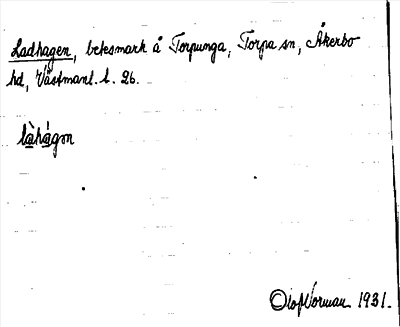 Ladhagen, betesmark å Torpunga, Torpa sn, Åkerbo
hd, Västmanl. l. 26.
là̱há̱gɜn
Olof Norman 1931.